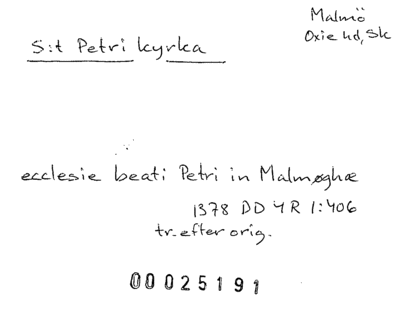 Malmö
Oxie hd, Sk
S:t Petri kyrka
ecclesie beati Petri in Malmøghæ
1378 DD 4R 1:406
tr. efter orig.
00025191